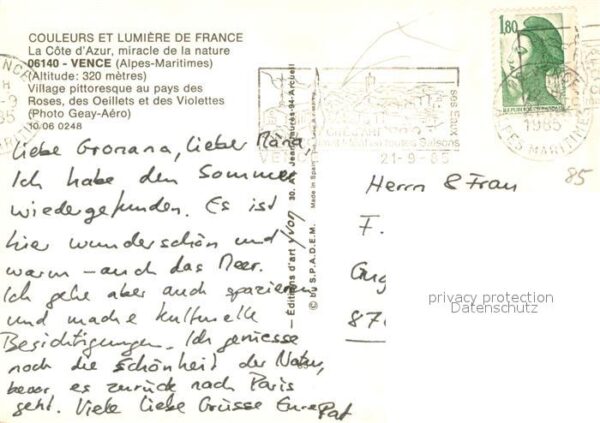 COULEURS ET LUMIÈRE DE FRANCE
La Côte d'Azur, miracle de la nature
06140 - VENCE (Alpes-Maritimes)
(Altitude: 320 mètres)
Village pittoresque au pays des
Roses, des Oeillets et des Violettes
(Photo Geay-Aéro)
10 06 0248
1,80
1985
21-9-85
toutes Saisons
ses Eaux
85
Liebe Gromana, Lieber
Ich habe den Sommer
wiedergefunden. Es ist
hier wunderschön und
warm - auch das Meer.
Ich gehe aber auch spazieren
und mache kulturelle
Besichtigungen. Ich geniesse
noch die Schönheit der Natur,
bevor es zurück nach Paris
geht. Viele liebe Grüsse Eure Pat
Éditions d'art yvon 30, Av. Jean Jaurès-94-Arcueil
© by S.P.A.D.E.M. Made in Spain
Herrn & Frau
F.
Gug
87
privacy protection
Datenschutz